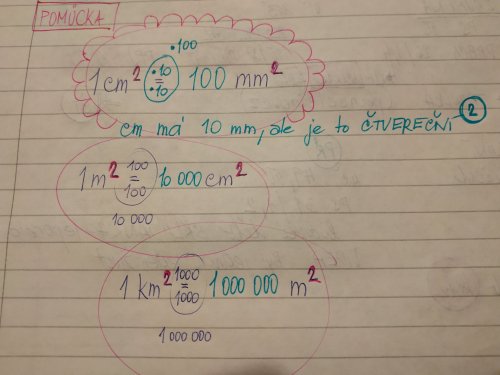 POMŮCKA
·100
1 cm² ·10 = ·10 100 mm²
cm má 10 mm, ale je to ČTVEREČNÍ 2
1 m² 100 = 100 10 000 cm²
10 000
1 km² 1000 = 1000 1 000 000 m²
1 000 000